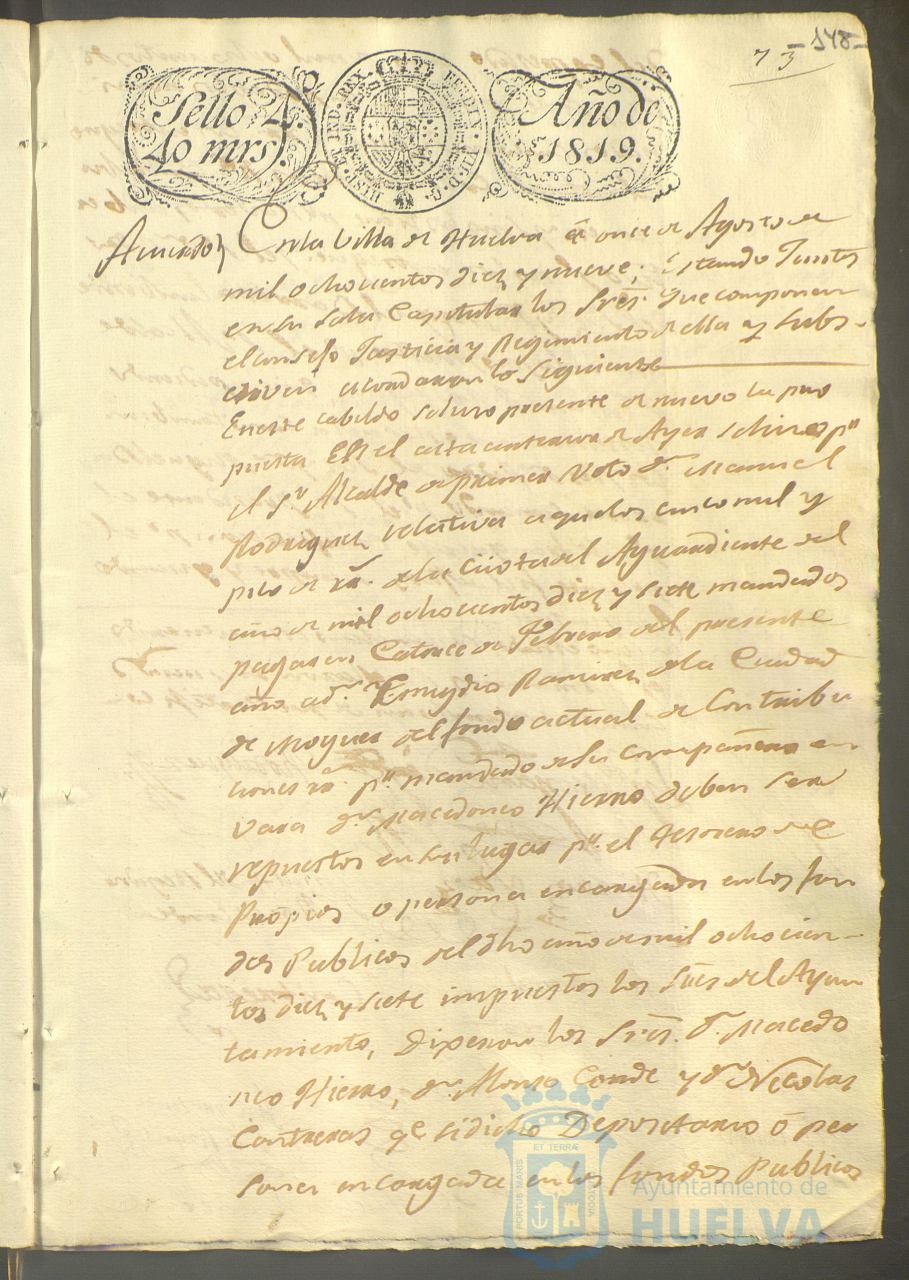 73 -148-
Sello 4.
40 mrs.
HISP. ET IND. REX FERDIN. VII. D. G.
Año de
1819.
Acuerdo) En la Villa de Huelva á once de Agosto de
mil ochocientos diez y nueve; estando Juntos
en su Sala Capitular los Sres. que componen
el consejo Justicia y Regimiento de ella y subs-
criven acordaron lo siguiente
En este cabildo se hizo presente de nuevo la pro
puesta en el acta anterior de Ayer se hizo pr
el Sr. Alcalde de primer Voto Dn. Manuel
Rodriguez relativa aque los cinco mil y
pico de rs. de la Cuota del Aguardiente del
año de mil ochocientos diez y siete mandados
pagar en Catorce de Febrero del presente
año a Dn. Emigdio Ramirez de la Ciudad
de Moguer del fondo actual de Contribu
ciones rs. pr. mandado de su compañero en
Vara Dn. Macedonio Hierro deben ser
repuestos en su lugar pr. el tesorero de
Propios o persona encargada en los fon
dos Publicos del dho año de mil ochocien-
tos diez y siete impuestos los Sres del Ayun
tamiento, dixeron los Sres. Dn. Macedo
nio Hierro, Dn. Alonso Conde y Dn. Nicolas
Contreras qe. si dicho Depositario ó per
sona encargada en los fondos Publicos
PORTUS MARIS ET TERRÆ CUSTODIA
Ayuntamiento de
HUELVA